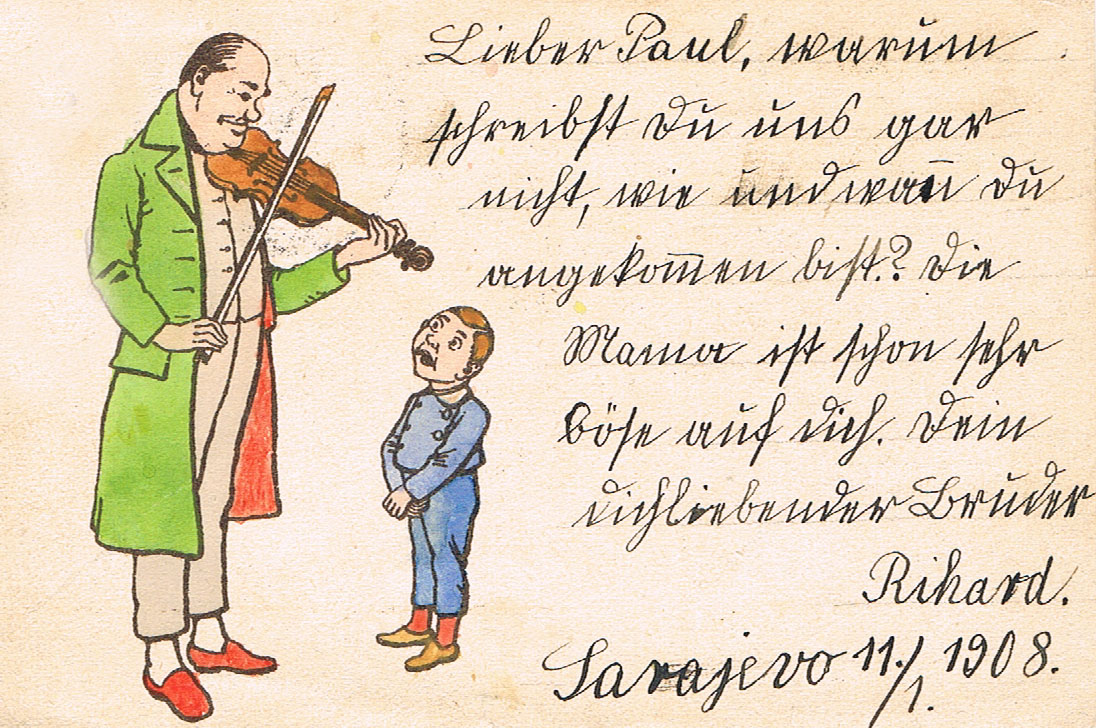 Lieber Paul, warum
schreibst Du uns gar
nicht, wie und wañ Du
angekom̄en bist? Die
Mama ist schon sehr
böse auf dich. Dein
dichliebender Bruder
Rihard.
Sarajevo 11./1. 1908.